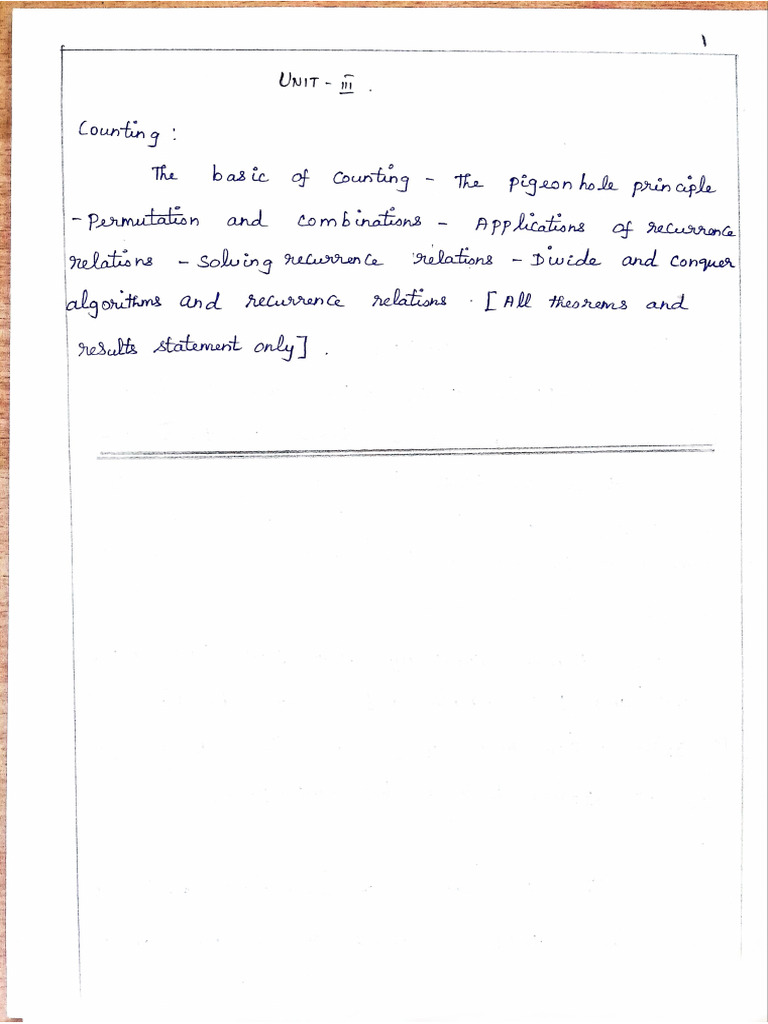 1
UNIT - III .
Counting :
The basic of counting - The pigeonhole principle
- Permutation and combinations - Applications of recurrence
relations - Solving recurrence relations - Divide and conquer
algorithms and recurrence relations . [All theorems and
results statement only] .